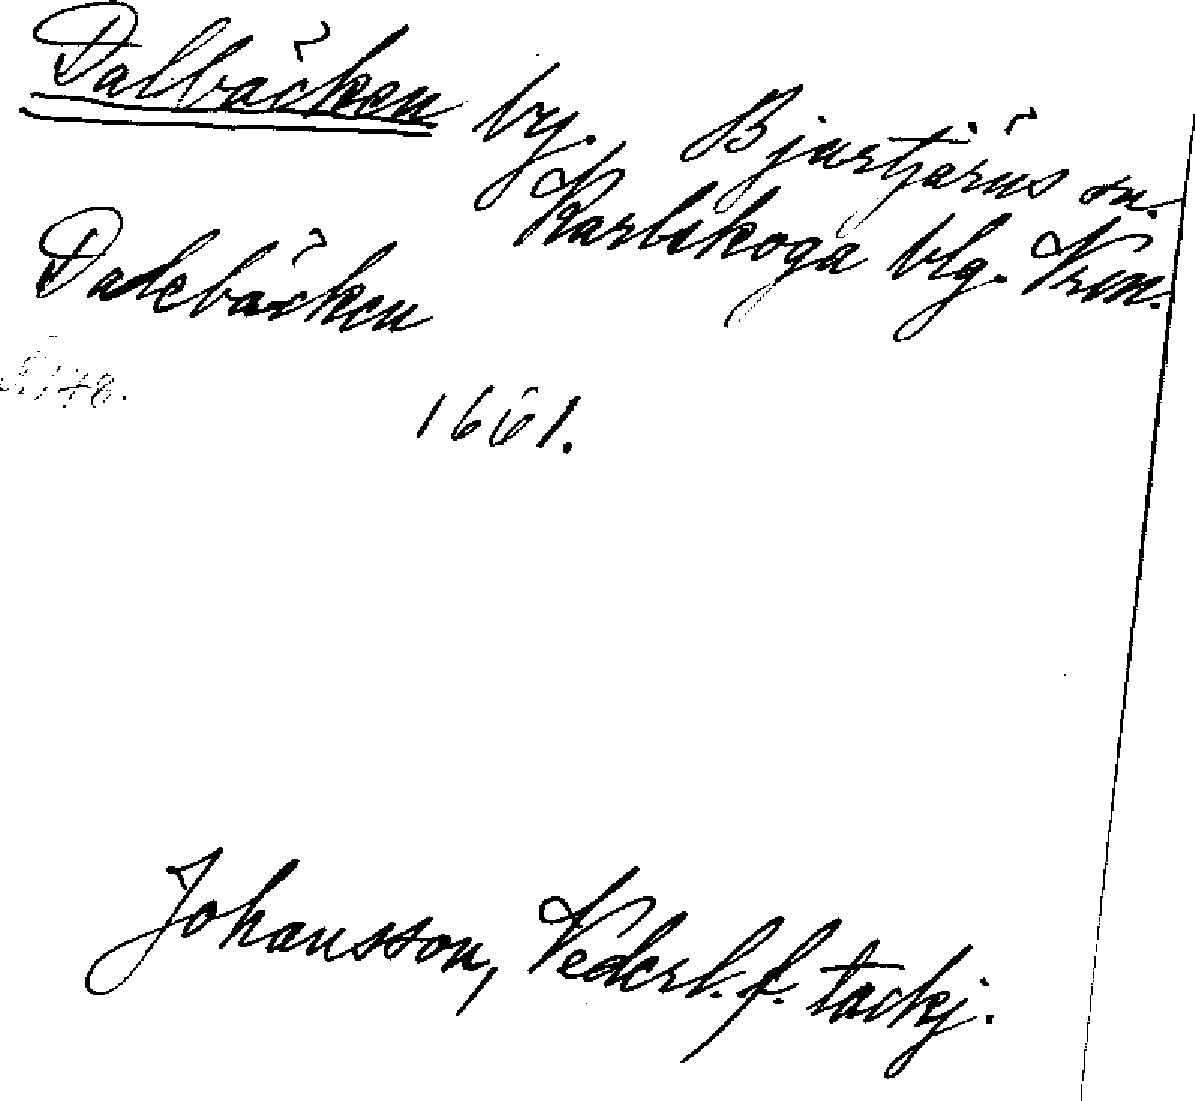 Dalbäcken by. Bjurtjärns sn.
Karlskoga blg. Vrm.
Dalebäcken
1661.
Johansson, Vederl. f. tackj.